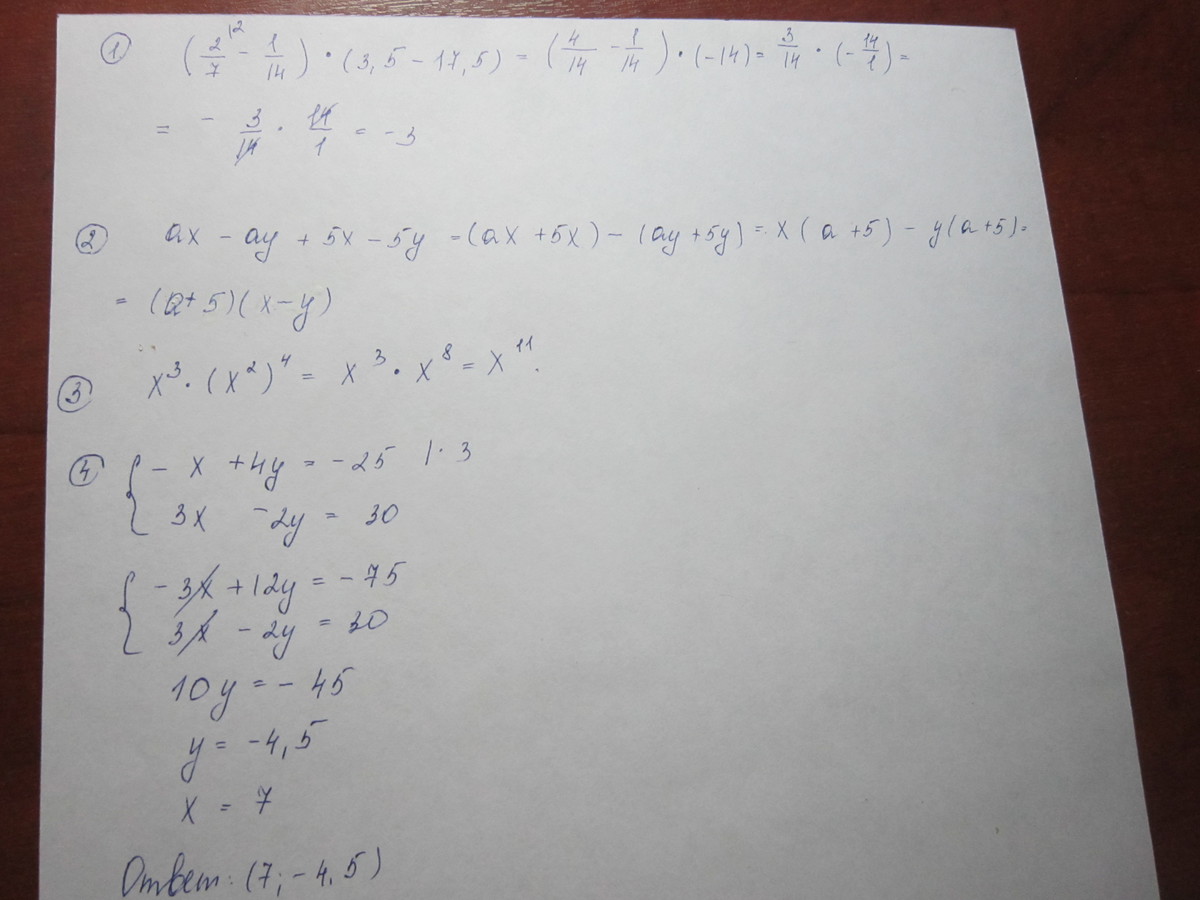 ① (2/7 |2 - 1/14) · (3,5 - 17,5) = (4/14 - 1/14) · (-14) = 3/14 · (-14/1) =
= - 3/14 · 14/1 = -3
② ax - ay + 5x - 5y = (ax + 5x) - (ay + 5y) = x(a + 5) - y(a + 5) =
= (a + 5)(x - y)
③ x³ · (x²)⁴ = x³ · x⁸ = x¹¹.
④ { - x + 4y = -25 | · 3
3x - 2y = 30
{ - 3x + 12y = -75
3x - 2y = 30
10y = - 45
y = -4,5
x = 7
Ответ: (7; -4,5)